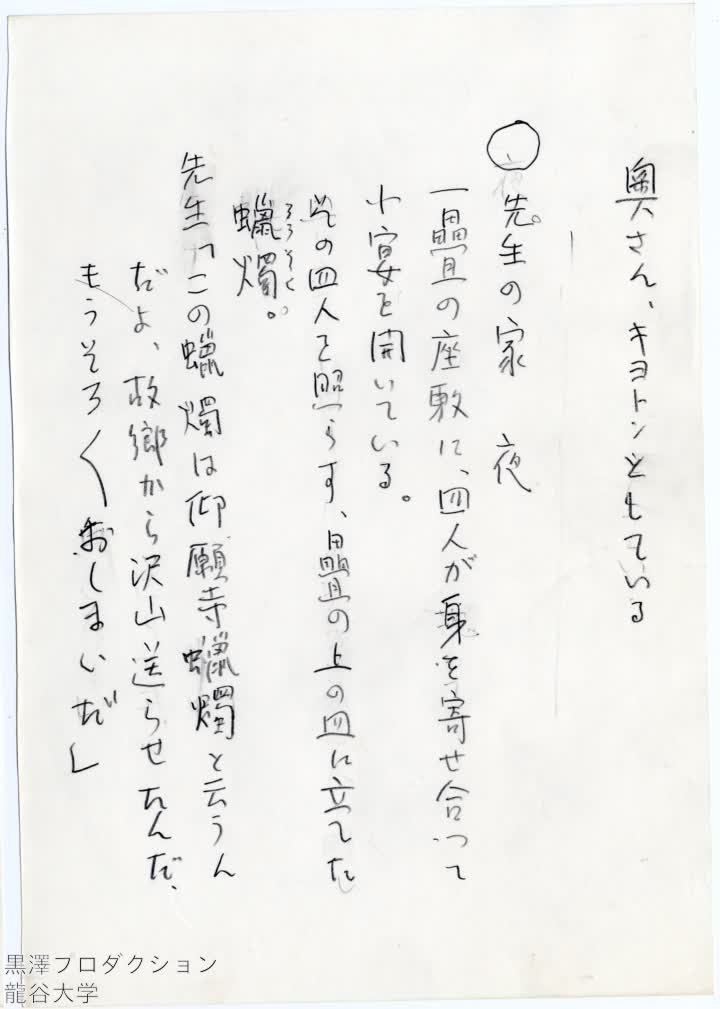 奥さん、キヨトンとしている
○先生の家　夜
一畳の座敷に、四人が身を寄せ合って
小宴を開いている。
その四人を照らす、畳の上の皿に立てた
蠟燭。
ろうそく
先生「この蠟燭は仰願寺蠟燭と云うん
だよ、故郷から沢山送らせたんだ、
もうそろ〱おしまいだ」
黒澤プロダクション
龍谷大学